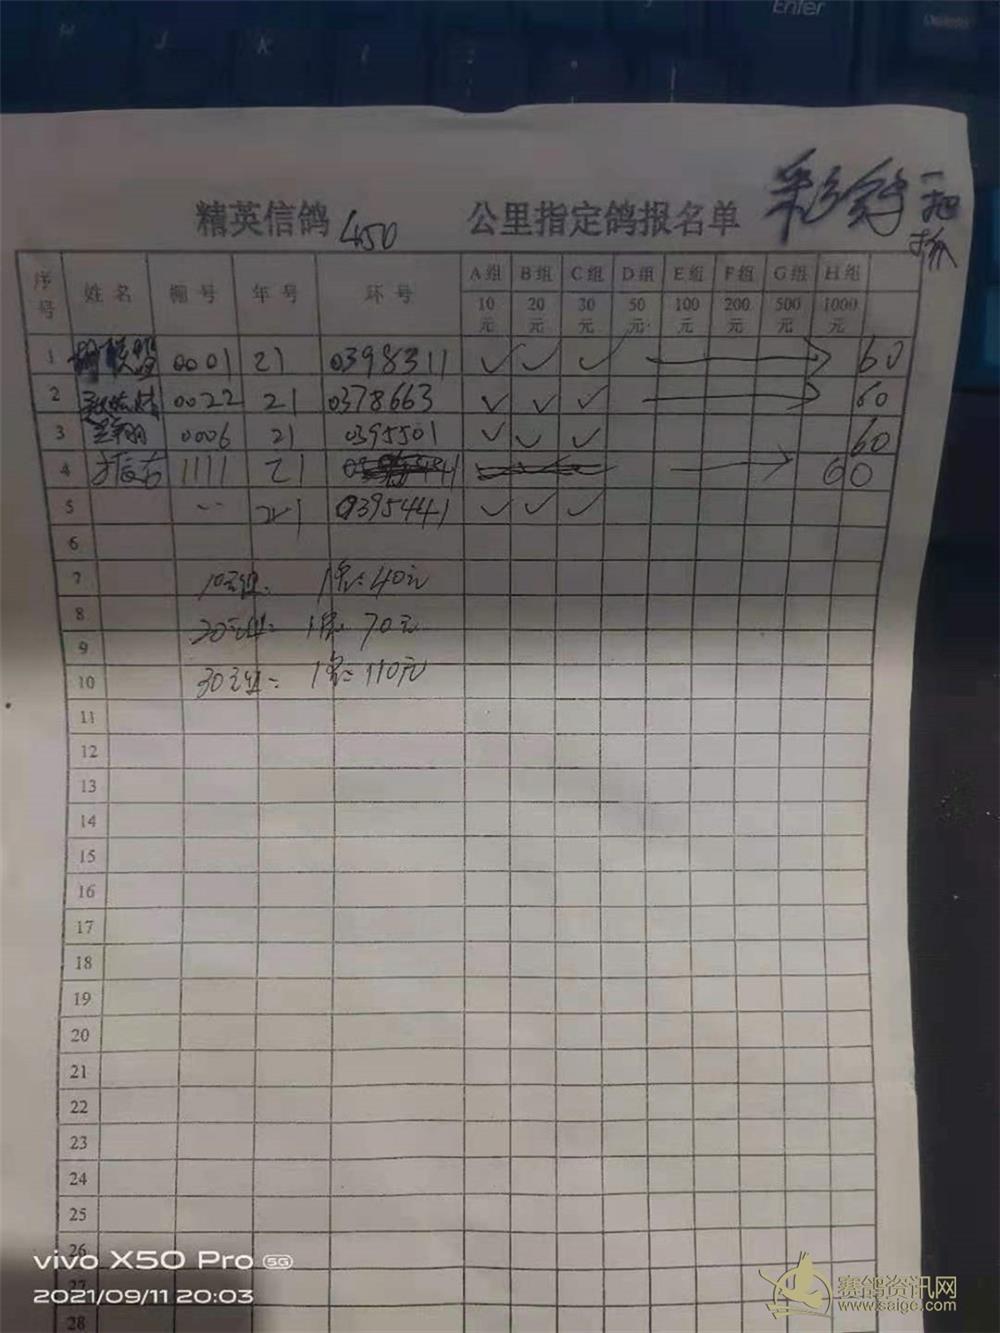 Enter
Delete
H J K L
精英信鸽 450 公里指定鸽报名单 彩 一把抓
序号 姓名 棚号 年号 环号 A组 B组 C组 D组 E组 F组 G组 H组
10元 20元 30元 50元 100元 200元 500元 1000元
1 0001 21 0398311 ✓ ✓ ✓ 60
2 0022 21 0378663 ✓ ✓ ✓ 60
3 0006 21 0395501 ✓ ✓ ✓ 60
4 1111 21 60
5 21 0395441 ✓ ✓ ✓
6
7 10元组: 1名: 40元
8 20元组: 1名: 70元
9
10 30元组: 1名: 110元
11
12
13
14
15
16
17
18
19
20
21
22
23
24
25
26
27
28
vivo X50 Pro 5G
2021/09/11 20:03
赛鸽资讯网
www.saige.com